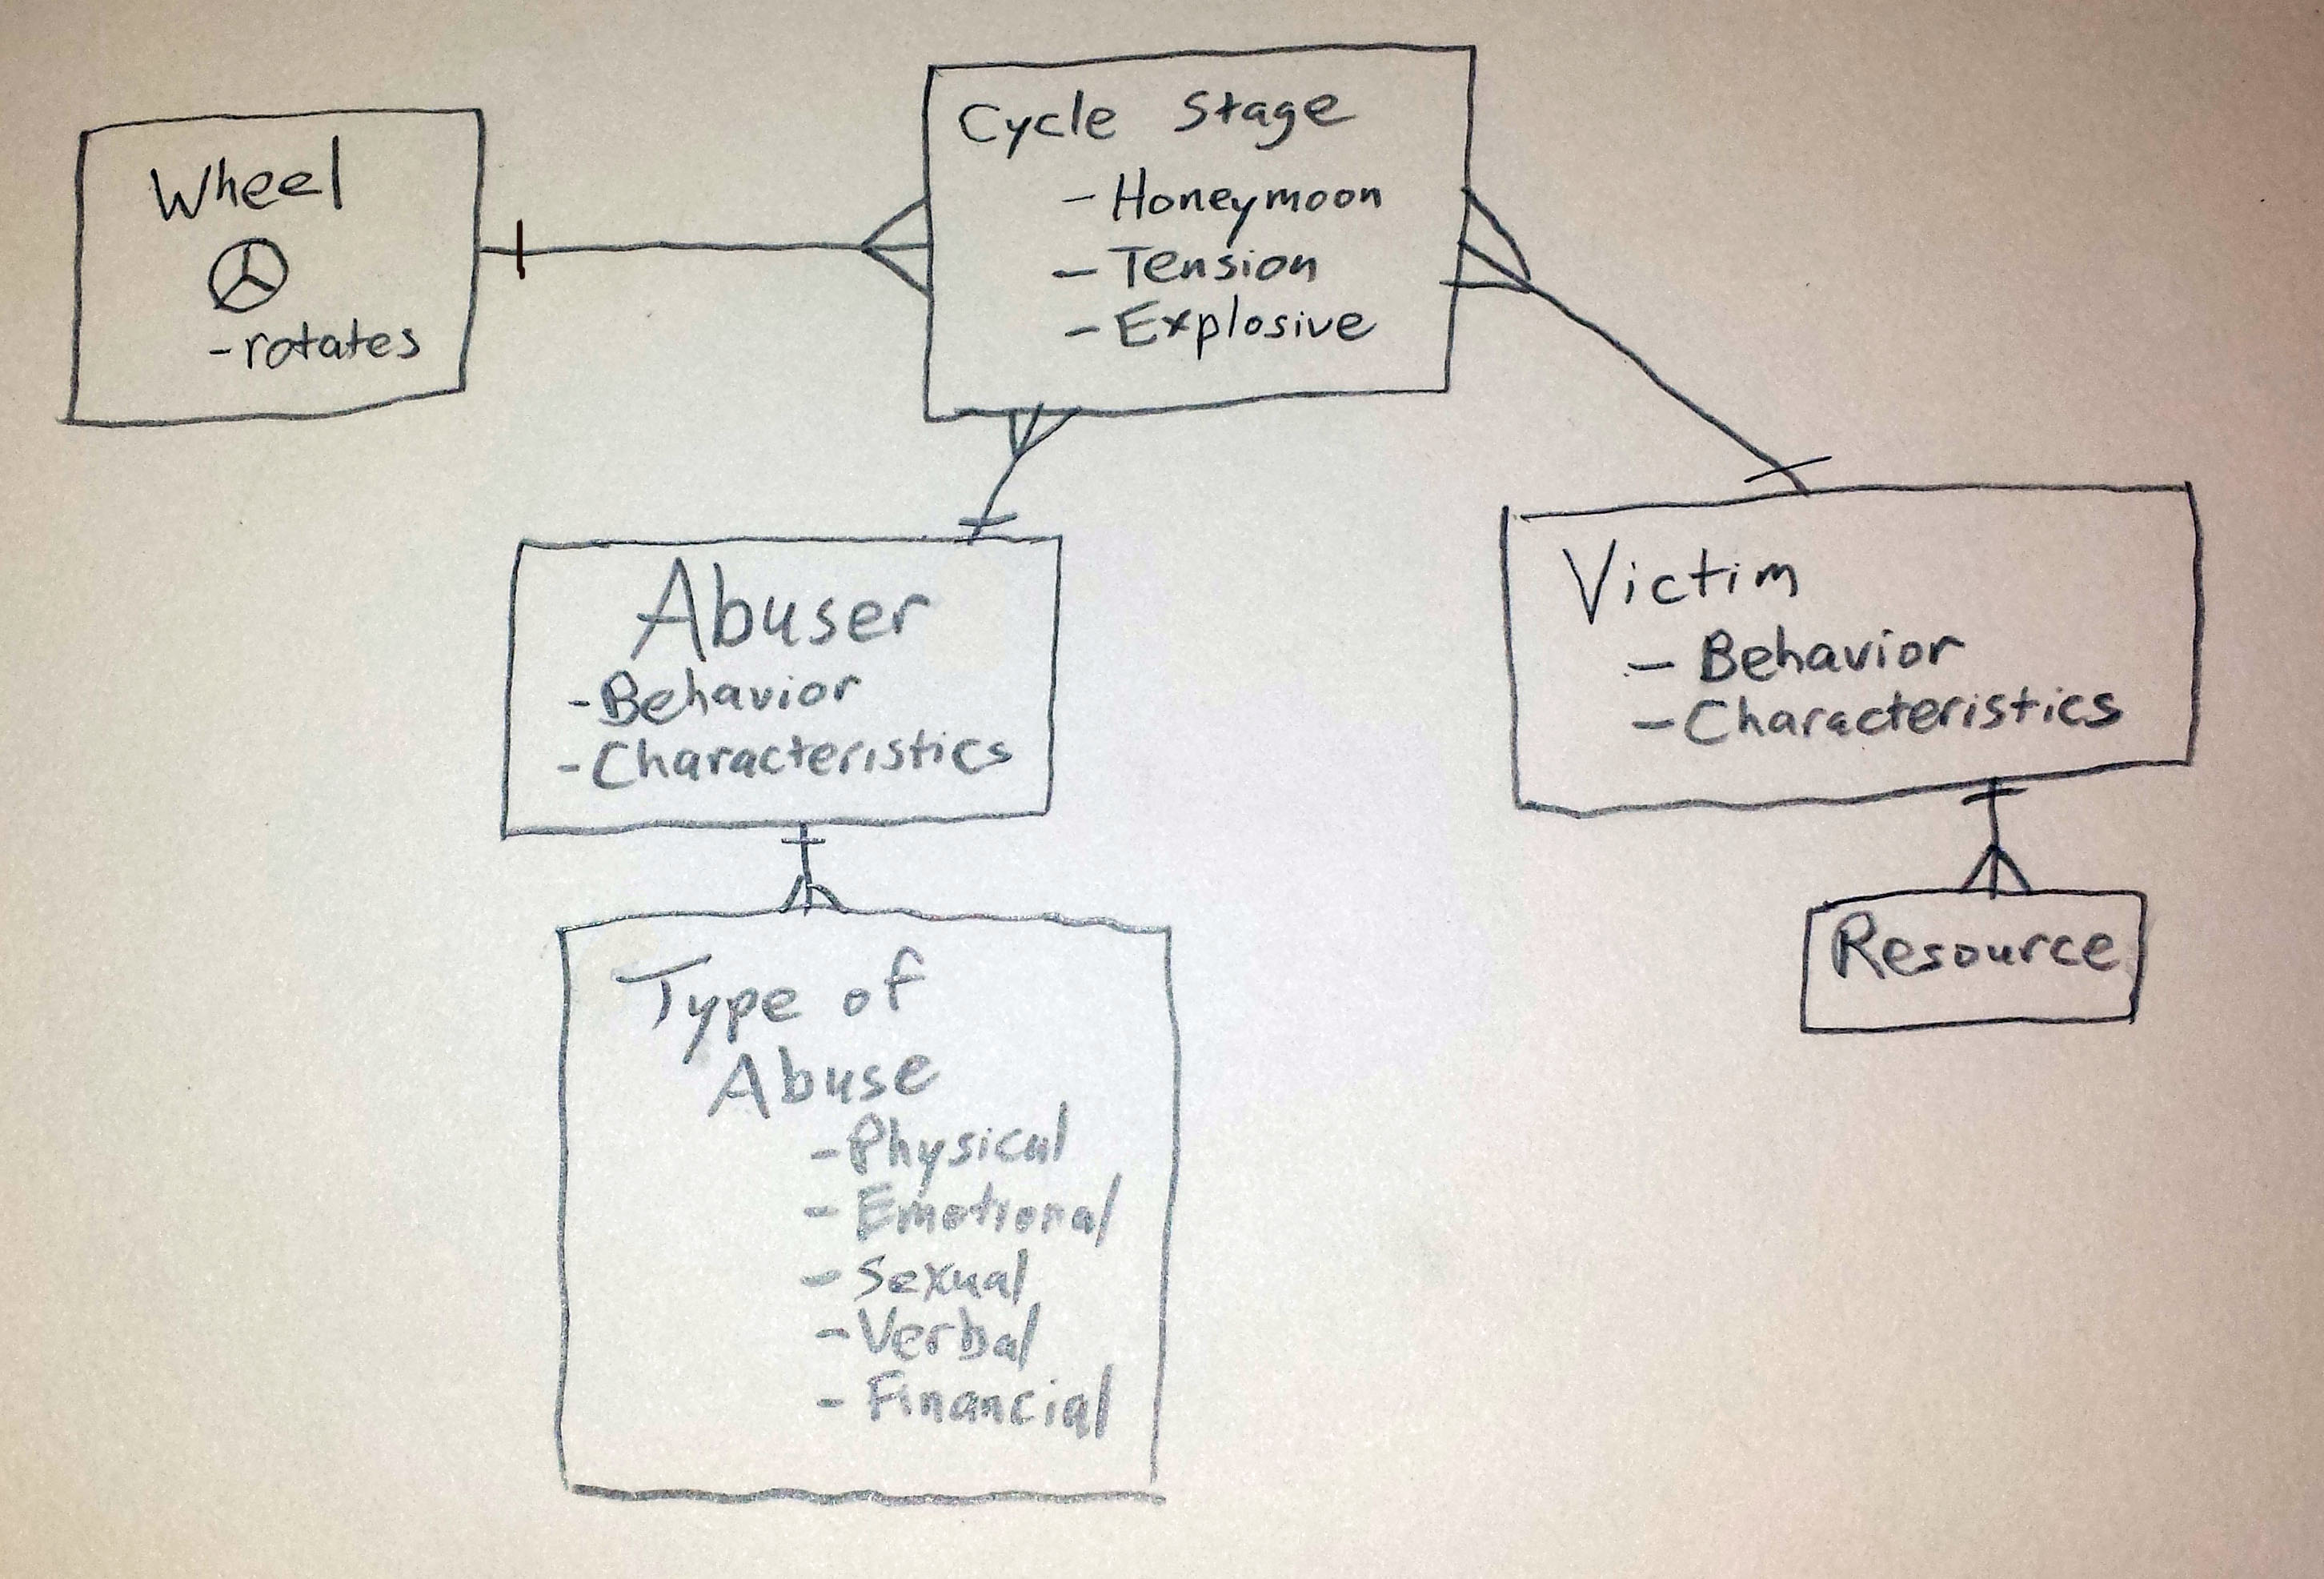 Wheel
-rotates
Cycle Stage
- Honeymoon
- Tension
- Explosive
Abuser
-Behavior
-Characteristics
Victim
- Behavior
- Characteristics
Resource
Type of
Abuse
-Physical
- Emotional
- Sexual
- Verbal
- Financial